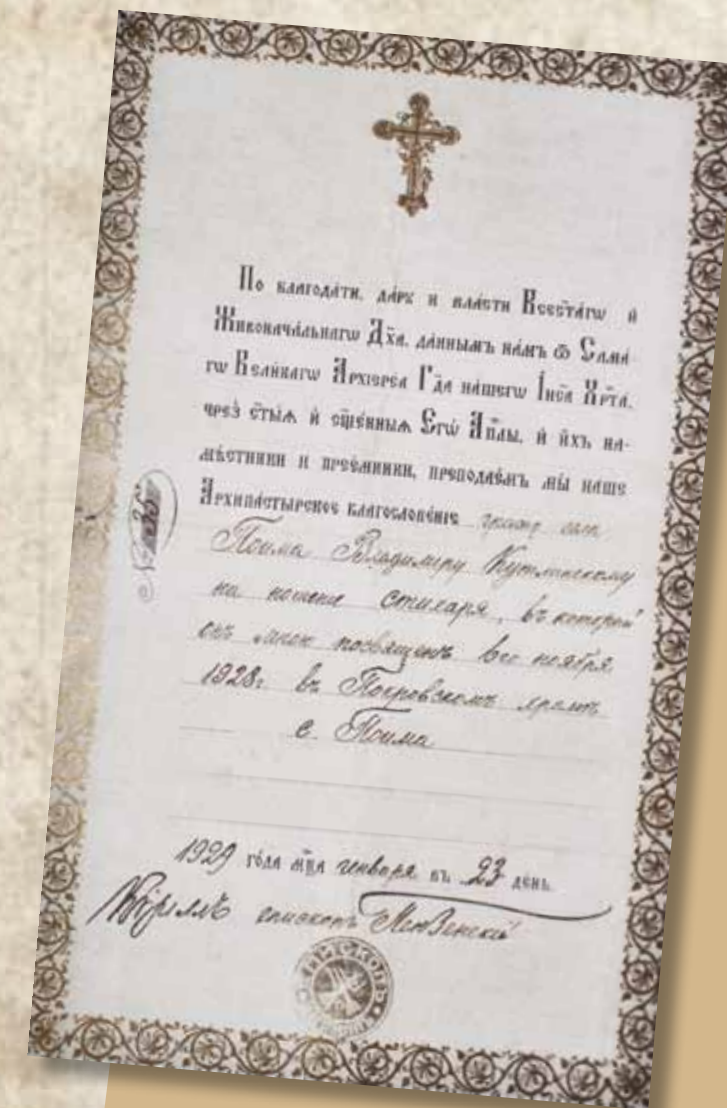 По благода́ти, да́рꙋ и вла́сти Всест҃а́гѡ и҆
Живонача́льнагѡ Дх҃а, да́ннымъ на́мъ ѿ Сама́-
гѡ Вели́кагѡ А҆рхїере́а Гд҇а на́шегѡ І҆и҃са Хр҇та̀,
чрез̾ ст҃ы́ѧ и҆ сщ҃е́нныѧ Є҆гѡ̀ А҆пⷭ҇лы, и҆ и҆́хъ на-
мѣ́стники и прее́мники, преподае́мъ мы̀ наше
А҆рхипа́стырское благослове́нїе
Поима Владимиру Кутлинскому
на ношение стихаря, въ который
онъ мною посвященъ ноября
1928г въ Покровскомъ храмѣ
с. Поима
1929 го́да мц҇а генваря въ 23 день.
Кѷриллъ епископъ Пензенскій